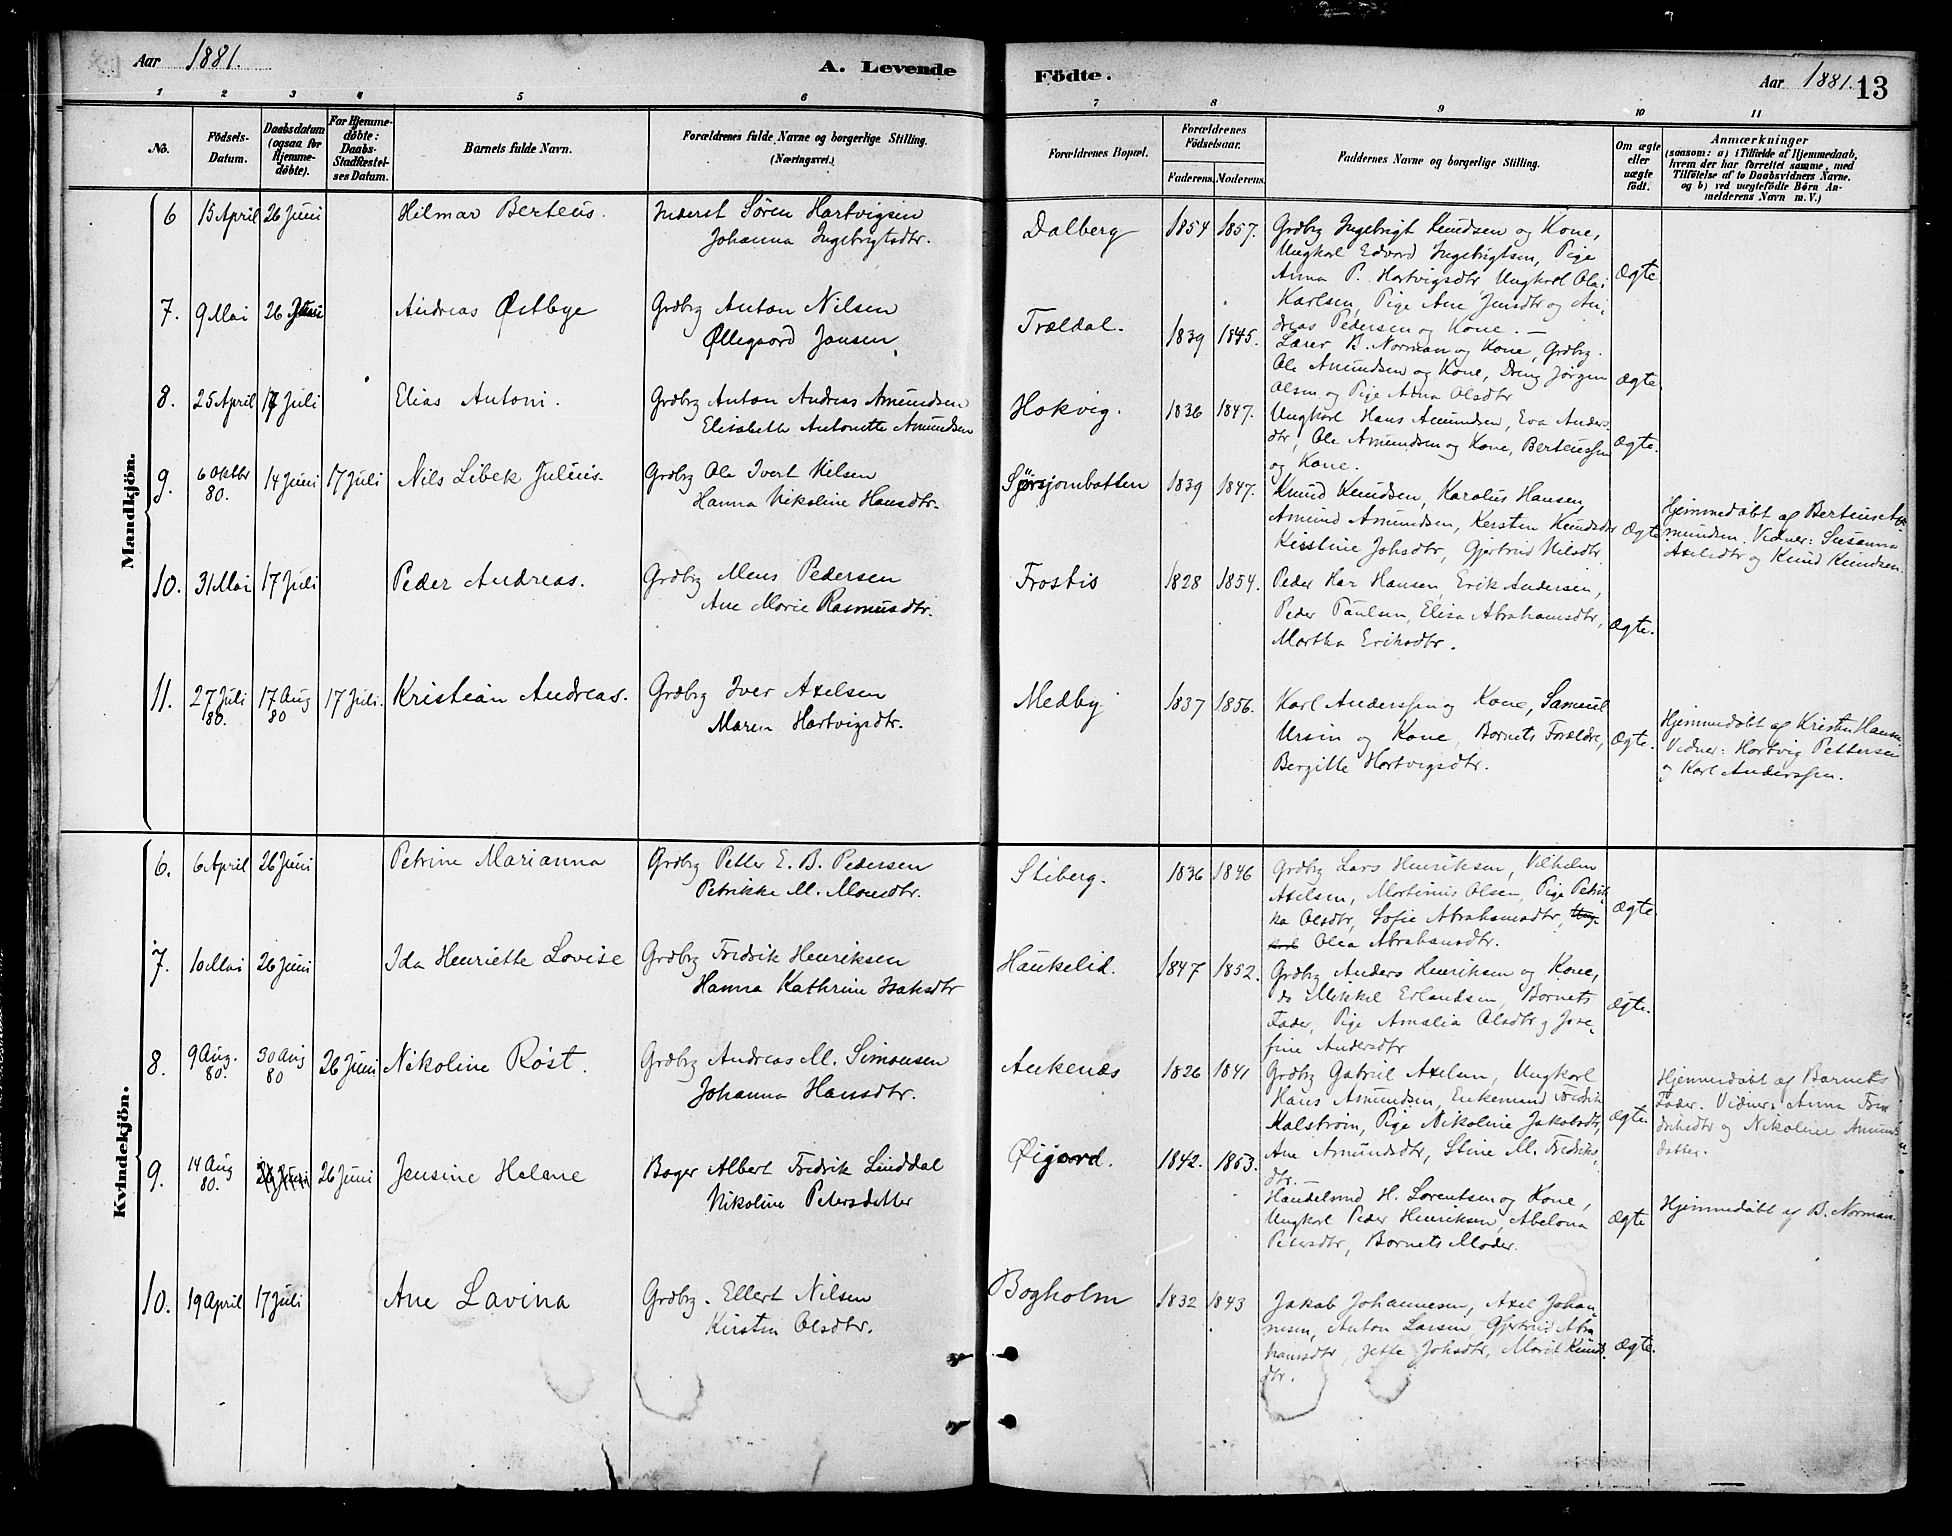 Aar 1881.
A. Levende
Födte.
Aar 1881. 13
1 2 3 4 5 6 7 8 9 10 11
No.
Födsels-Datum.
Daabsdatum (ogsaa for Hjemme-døbte).
For Hjemme-døbte: Daabs-Stadfæstel-ses Datum.
Barnets fulde Navn.
Forældrenes fulde Navne og borgerlige Stilling. (Næringsvei.)
Forældrenes Bopæl.
Forældrenes Födselsaar.
Faderens. Moderens.
Faddernes Navne og borgerlige Stilling.
Om ægte eller uægte födt.
Anmærkninger
(saasom: a) i Tilfælde af Hjemmedaab,
hvem der har forrettet samme, med
Tilföielse af to Daabsvidners Navne,
og b) ved uægtefödte Børn An-
melderens Navn m. V.)
Mandkjön.
6 15 April 26 Juni Hilmar Berteus. Inderst Sören Hartvigsen
Johanna Ingebrigtsdtr.
Dalberg 1854 1857. Grdbrg Ingebrigt Knudsen og Kone,
Ungkarl Edvard Ingebrigtsen, Pige
Anna P. Hartvigsdtr Ungkarl Olai
Karlsen, Pige Ane Jensdtr og An-
dreas Pedersen og Kone. —
Ægte
7. 9 Mai 26 Juni Andreas Østbye Grdbrg Anton Nilsen
Øllegaard Jansen
Trældal. 1839 1845. Lærer B. Norman og Kone, Grdbrg.
Ole Amundsen og Kone, Dreng Jørgen
Olsen og Pige Anna Olsdtr
Ægte
8. 25 April 17 Juli Elias Antoni. Grdbrg Anton Andreas Amundsen
Elisabeth Antonette Amundsen
Hokvig. 1836 1847. Ungkarl Hans Amundsen, Eva Anders
dtr, Ole Amundsen og Kone, Berteussen
og Kone.
Ægte.
9. 6 Oktbr 80. 14 Juni 17 Juli Nils Libek Julius. Grdbrg Ole Ivert Nilsen
Hanna Nikoline Hansdtr.
Sjørsjombotten 1839 1847. Knud Knudsen, Karolus Hansen
Amund Amundsen, Kersten Knudsdtr
Kirstine Johsdtr, Gjertrud Nilsdtr
Ægte
Hjemmedøbt af Berteus A-
mundsen. Vidner: Susanna
Axelsdtr og Knud Knudsen.
10. 31 Mai 17 Juli Peder Andreas. Grdbrg Mons Pedersen
Ane Marie Rasmusdtr.
Frostis 1828 1854. Peder Kar Hansen, Erik Andersen,
Peder Paulsen, Elisa Abrahamsdtr,
Martha Eriksdtr.
Ægte.
11. 27 Juli 80. 17 Aug 80 17 Juli. Kristian Andreas. Grdbrg Iver Axelsen
Maren Hartvigsdtr.
Medby 1837 1856. Karl Anderssen og Kone, Samuel
Ursin og Kone, Barnets Forældre,
Bergitte Hartvigsdtr.
Ægte.
Hjemmedøbt af Kristen Hansen
Vidner: Hartvig Pettersen
og Karl Anderssen.
Kvindekjön.
6. 6 April 26 Juni Petrine Marianna Grdbrg Petter E. B. Pedersen
Petrikke M. Monsdtr.
Stiberg. 1836 1846 Grdbrg Lars Henriksen, Vilhelm
Axelsen, Martinus Olsen, Pige Petrik-
ka Olsdtr, Sofie Abrahamsdtr, Ung-
karl Olea Abrahamsdtr.
Ægte.
7. 10 Mai 26 Juni Ida Henriette Lovise Grdbrg Fredrik Henriksen
Hanna Kathrine Isaksdtr
Haukelid. 1847 1852. Grdbrg Anders Henriksen og Kone,
do Mikkel Erlandsen, Barnets
Fader, Pige Amalia Olsdtr og Jose-
fine Andersdtr
Ægte.
8. 9 Aug. 80. 30 Aug 80 26 Juni Nikoline Røst. Grdbrg Andreas M. Simonsen
Johanna Hansdtr.
Ankenæs 1826 1841 Grdbrg Gabriel Axelsen, Ungkarl
Hans Asmundsen, Enkemand Fredrik
Malstrøm, Pige Nikoline Jakobsdtr,
Ane Amundsdtr, Stine M. Fredriks-
dtr. —
Ægte
Hjemmedøbt af Barnets
Fader. Vidner: Anna Fre-
driksdtr og Nikoline Amunds
datter.
9. 14 Aug 80. 26 Juni 26 Juni Jensine Helene Bager Albert Fredrik Linddal
Nikoline Petersdatter
Øigard. 1842. 1853. Handelsmd H. Lorentsen og Kone,
Ungkarl Peder Henriksen, Abelona
Petersdtr, Barnets Moder.
Ægte
Hjemmedøbt af B. Norman.
10. 19 April 17 Juli Ane Lavina Grdbrg. Ellert Nilsen
Kirsten Olsdtr.
Bogholm 1832 1843 Jakob Johannesen, Axel Johan-
nesen, Anton Larsen, Gjertrud Abra
hamsdtr, Jette Johsdtr, Marit Knuds.
dtr.
Ægte.